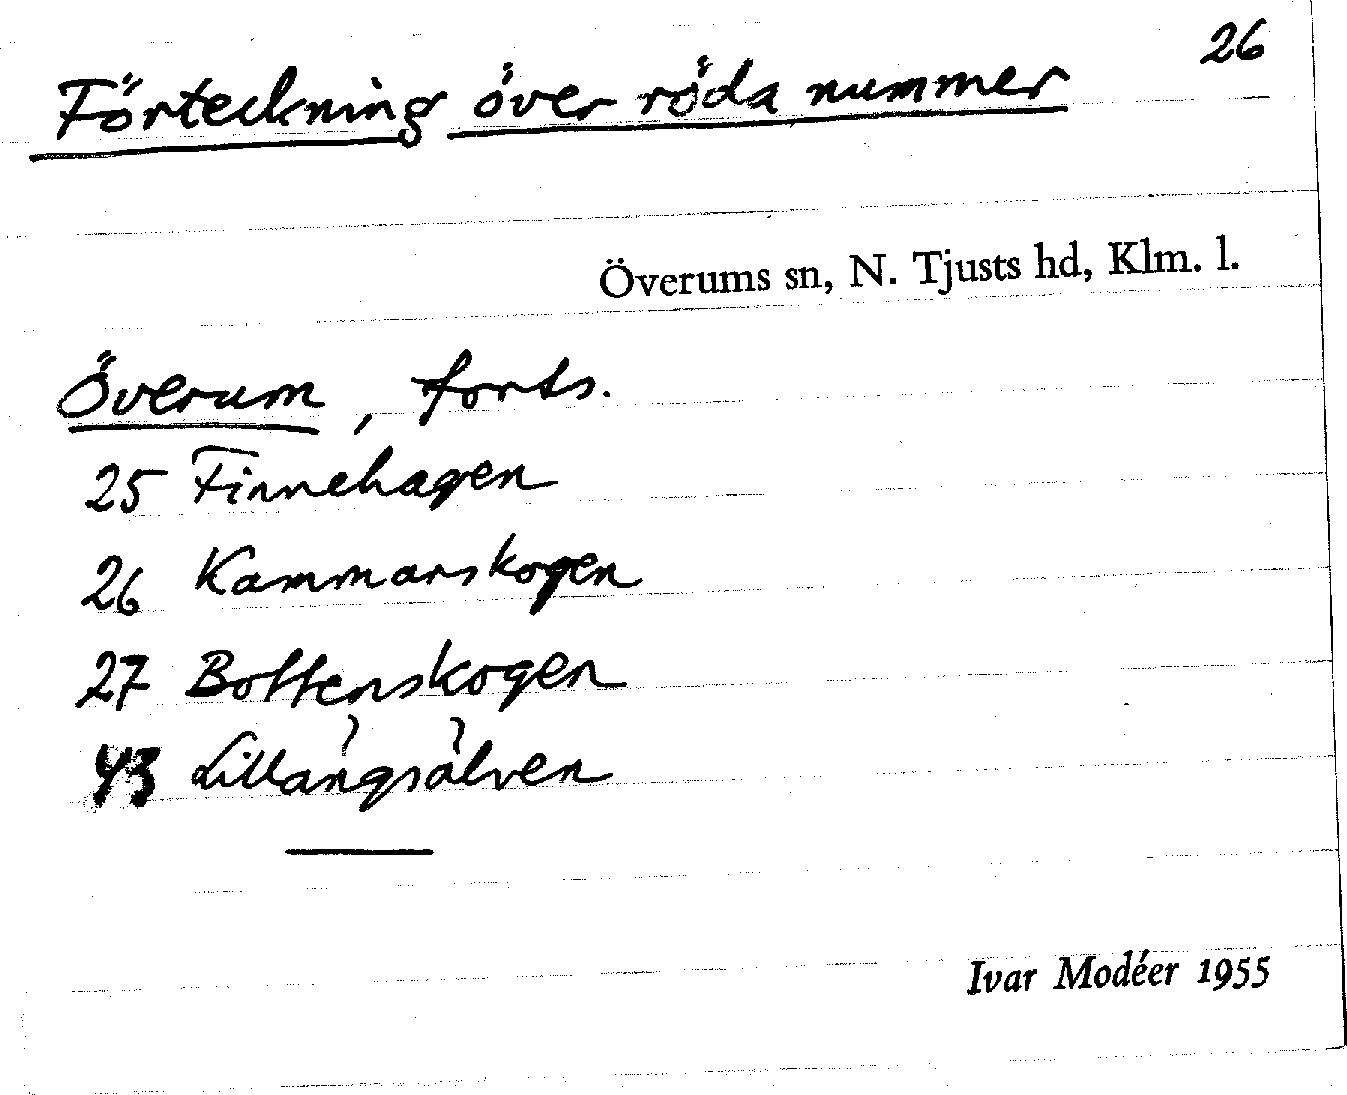 26
Förteckning över röda nummer
Överums sn, N. Tjusts hd, Klm. l.
Överum, forts.
25 Finnehagen
26 Kammarskogen
27 Bottenskogen
43 Lillängsälven
Ivar Modéer 1955